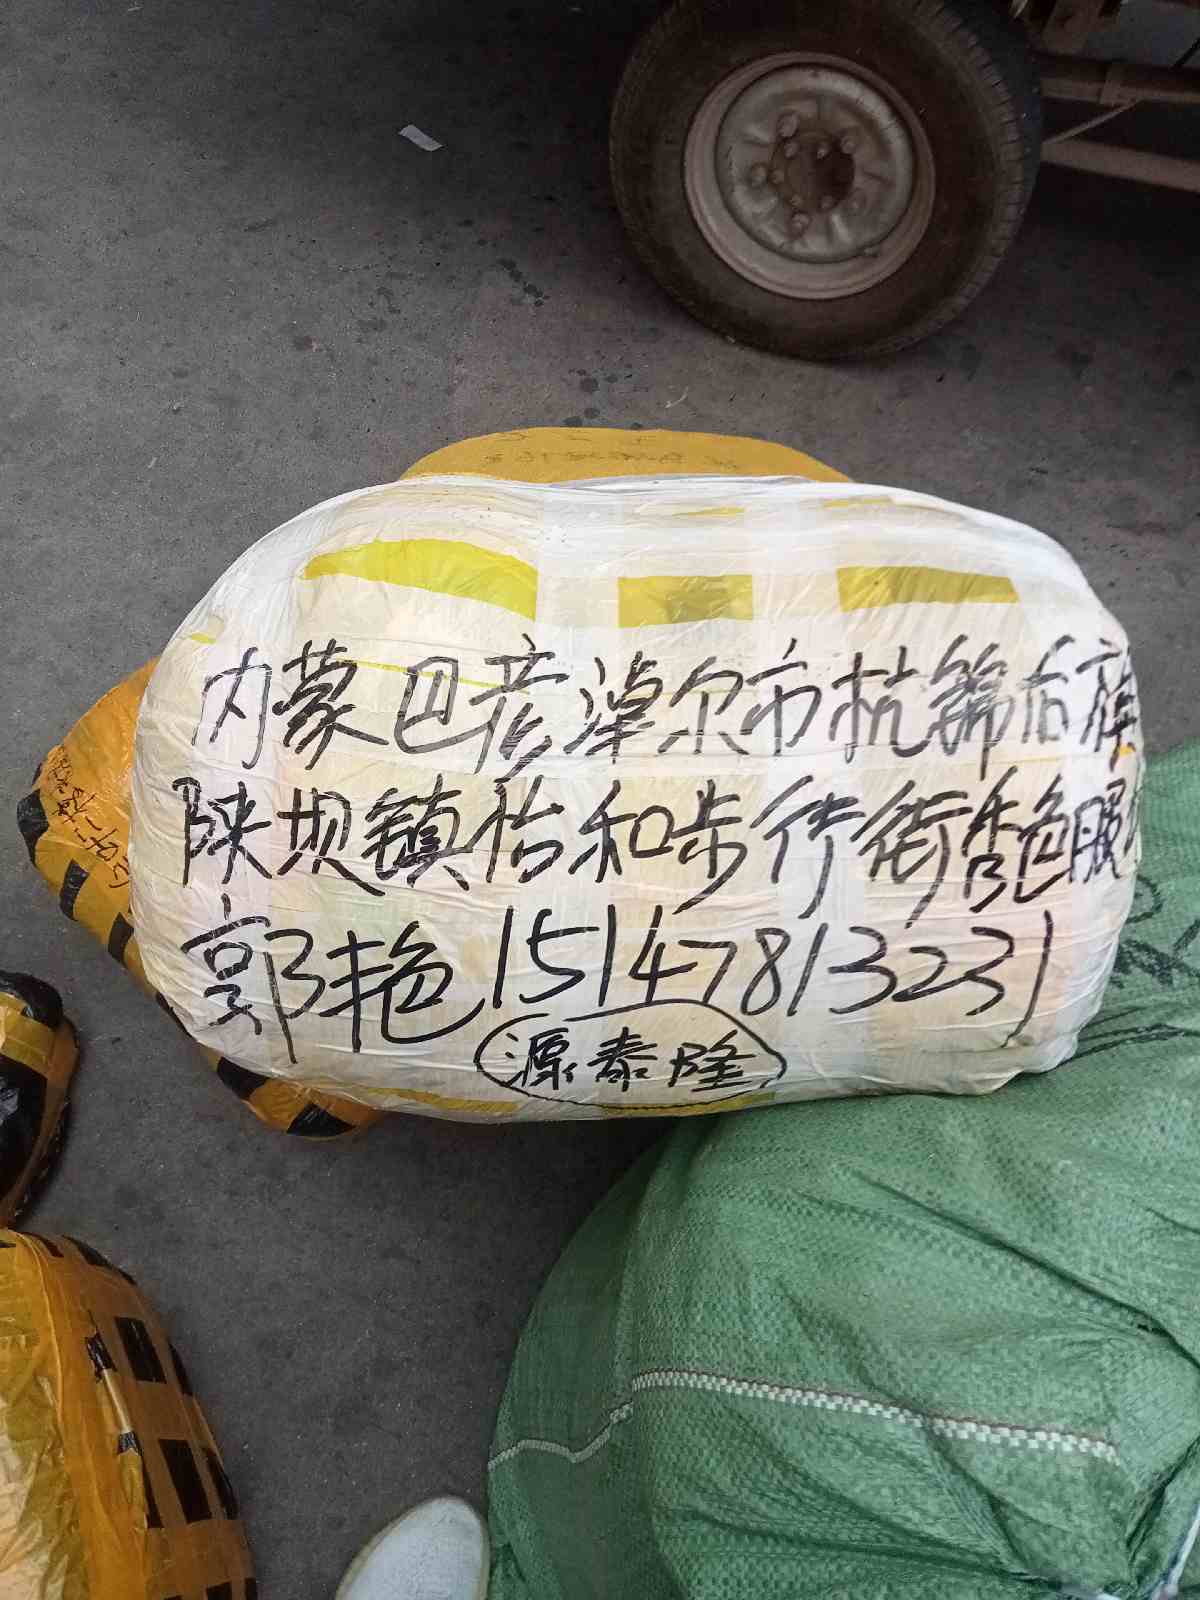 内蒙巴彦淖尔市杭锦后旗
陕坝镇怡和步行街香艳服
郭艳15147813231
源泰隆